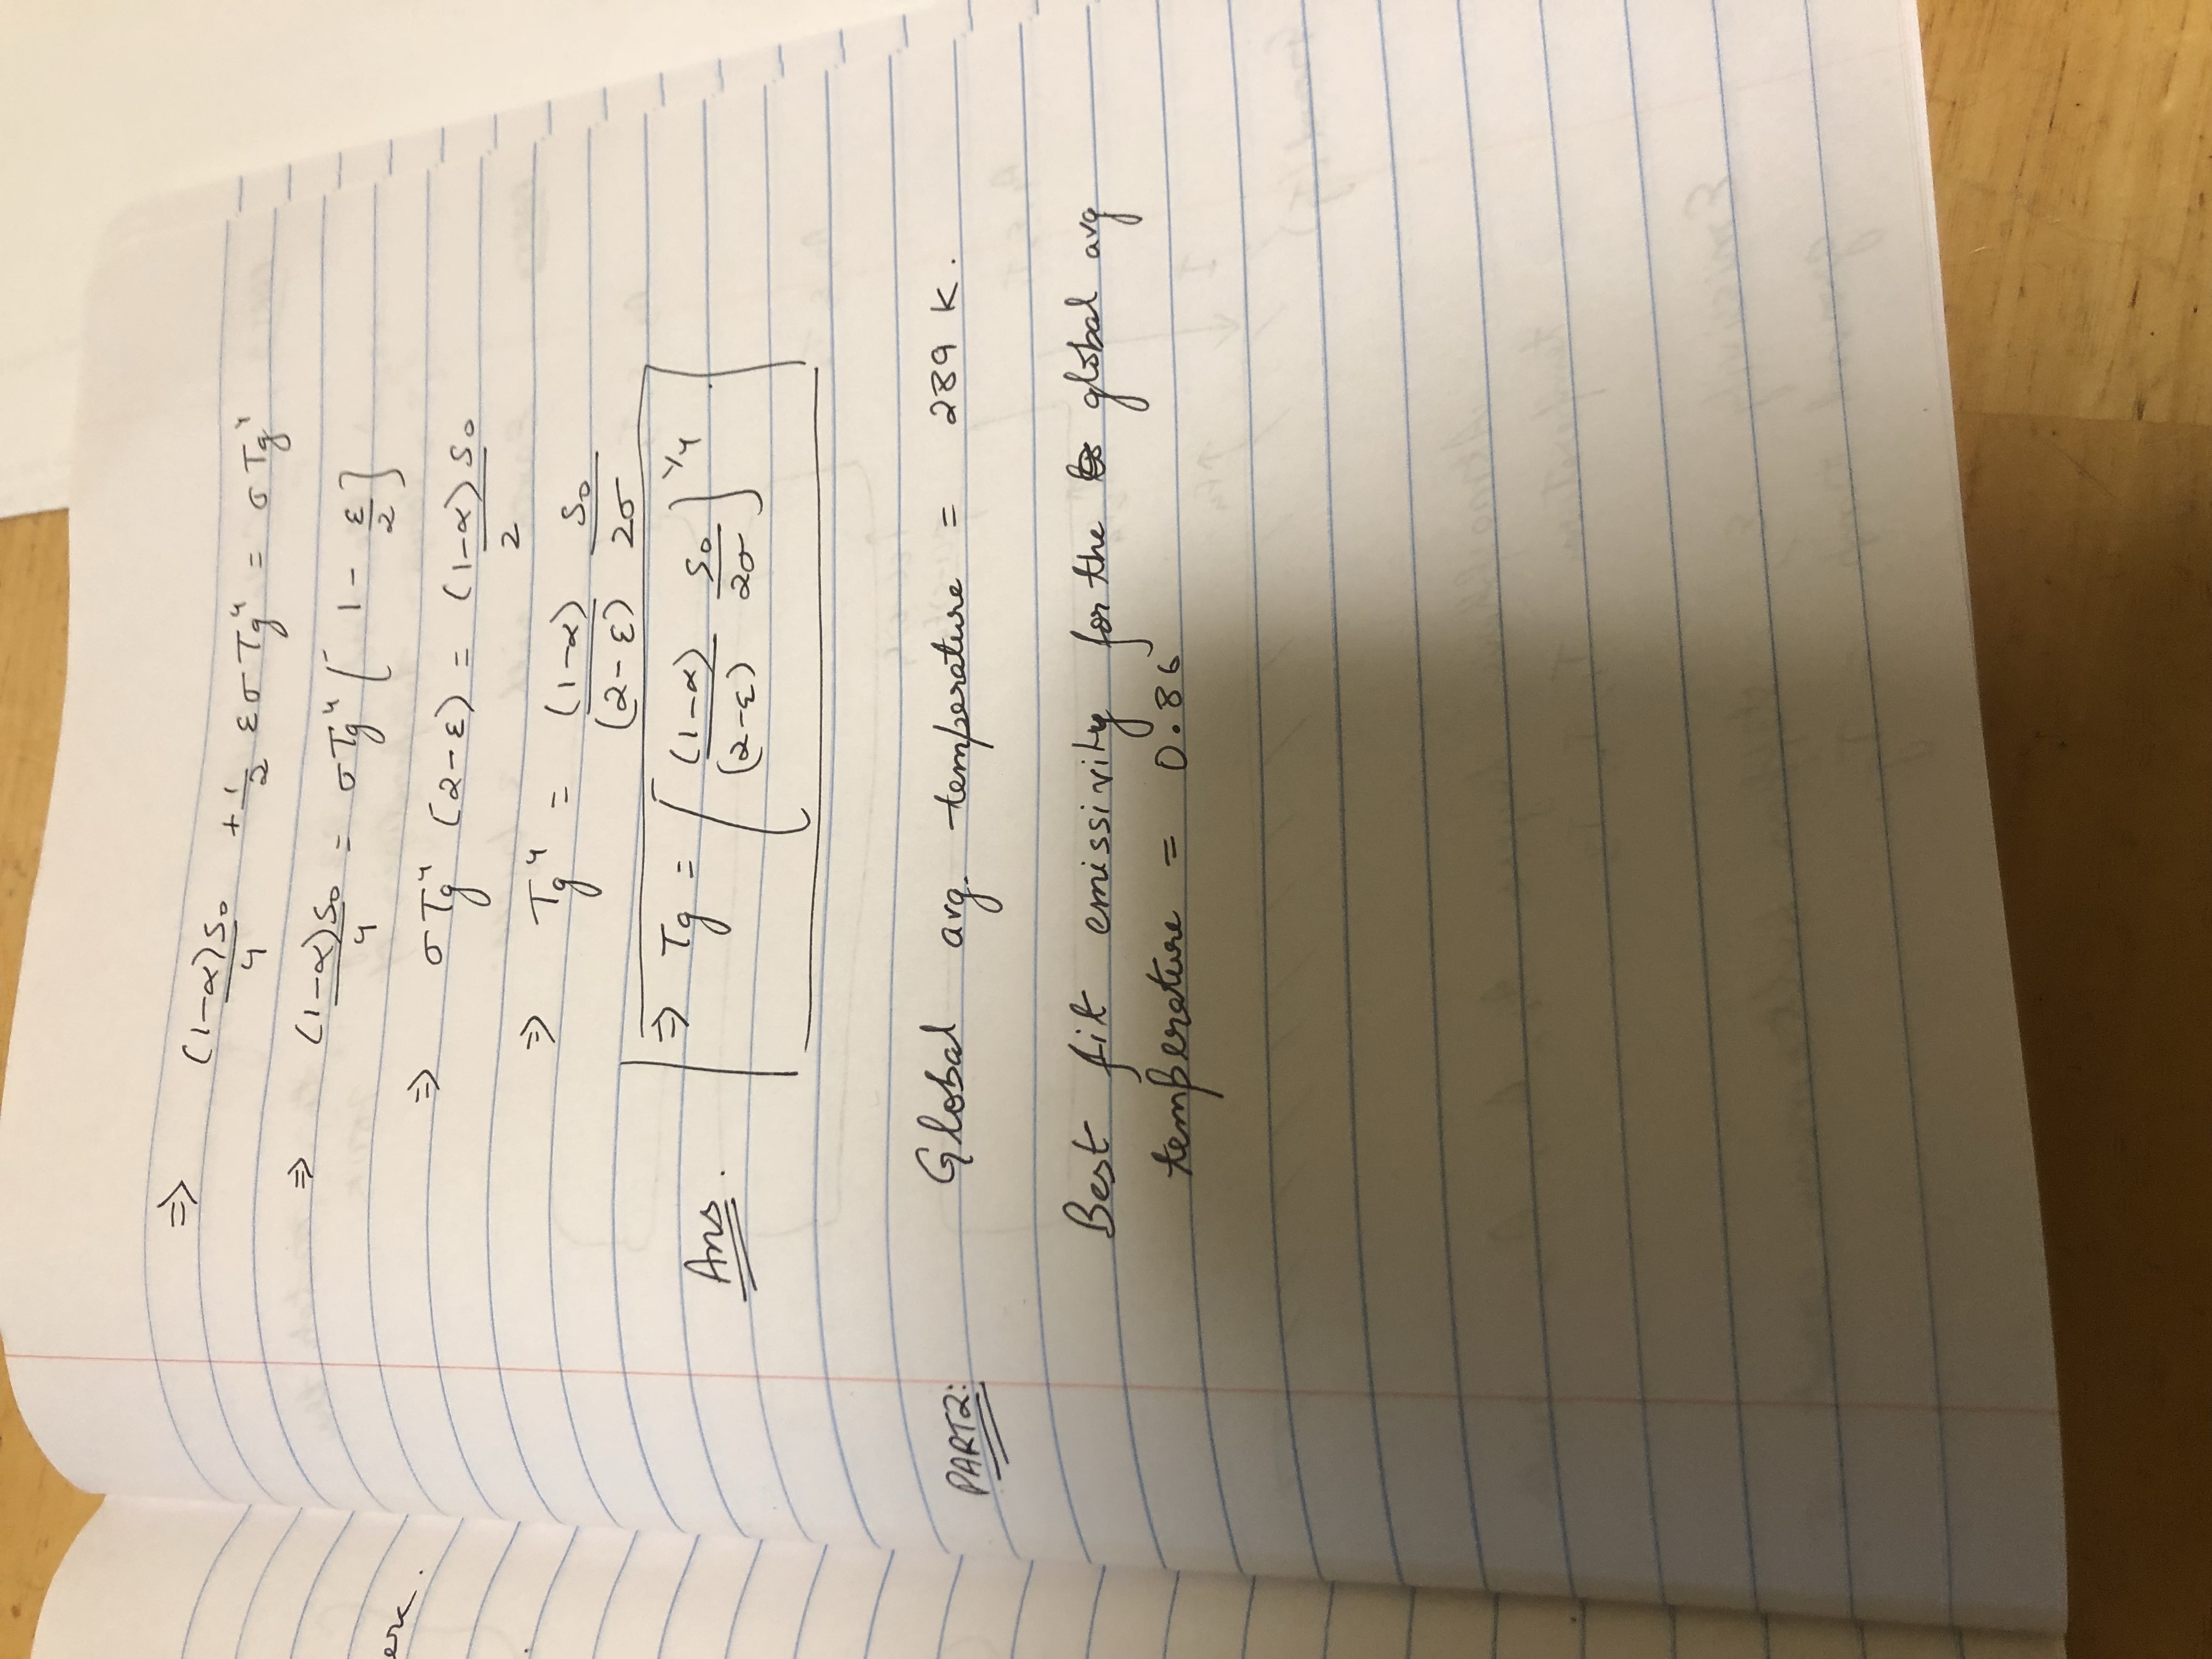 erc.
⇒ (1-α)S₀/4 + 1/2 εσTg⁴ = σTg⁴
⇒ (1-α)S₀/4 = σTg⁴ [1 - ε/2]
⇒ σTg⁴ (2-ε) = (1-α)S₀/2
⇒ Tg⁴ = (1-α)/(2-ε) S₀/2σ
Ans. ⇒ Tg = [(1-α)/(2-ε) S₀/2σ]^1/4.
PART2: Global avg. temperature = 289 K.
Best fit emissivity for the global avg
temperature = 0.86